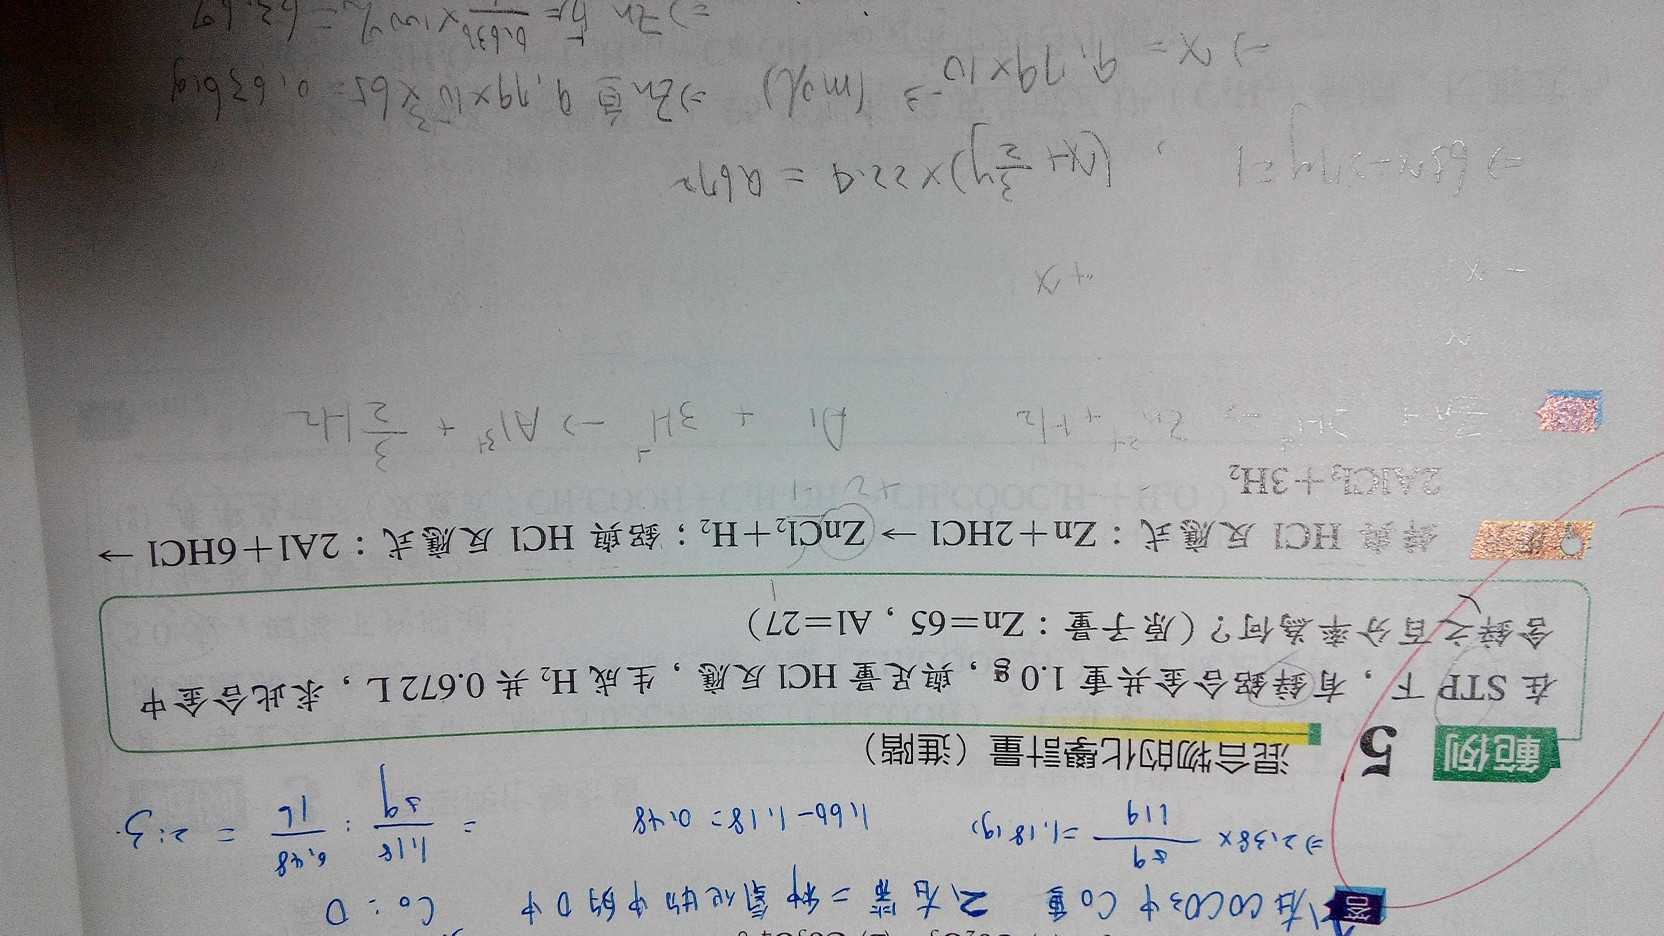 1) 在 COCO3 中 Co 重 2. 在第二種氧化物中的 O 中 Co : O
⇒ 2.38 × 59/119 = 1.18 (g) 1.66 - 1.18 = 0.48 = 1.18/59 : 0.48/16 = 2 : 3.
範例 5 混合物的化學計量（進階）
在 STP 下，有鋅鋁合金共重 1.0 g，與足量 HCl 反應，生成 H₂ 共 0.672 L，求此合金中
含鋅之百分率為何？（原子量：Zn=65，Al=27）
鋅與 HCl 反應式：Zn+2HCl → ZnCl₂+H₂；鋁與 HCl 反應式：2Al+6HCl →
2AlCl₃+3H₂
Zn + 2H⁺ → Zn²⁺ + H₂ Al + 3H⁺ → Al³⁺ + 3/2 H₂
- x + x
⇒ 65x + 27y = 1 , (x + 3/2 y) × 22.4 = 0.672
⇒ x = 9.79 × 10⁻³ (mol) ⇒ Zn 重 9.79 × 10⁻³ × 65 = 0.6361g
⇒ Zn 占 × 100% = 63.6%